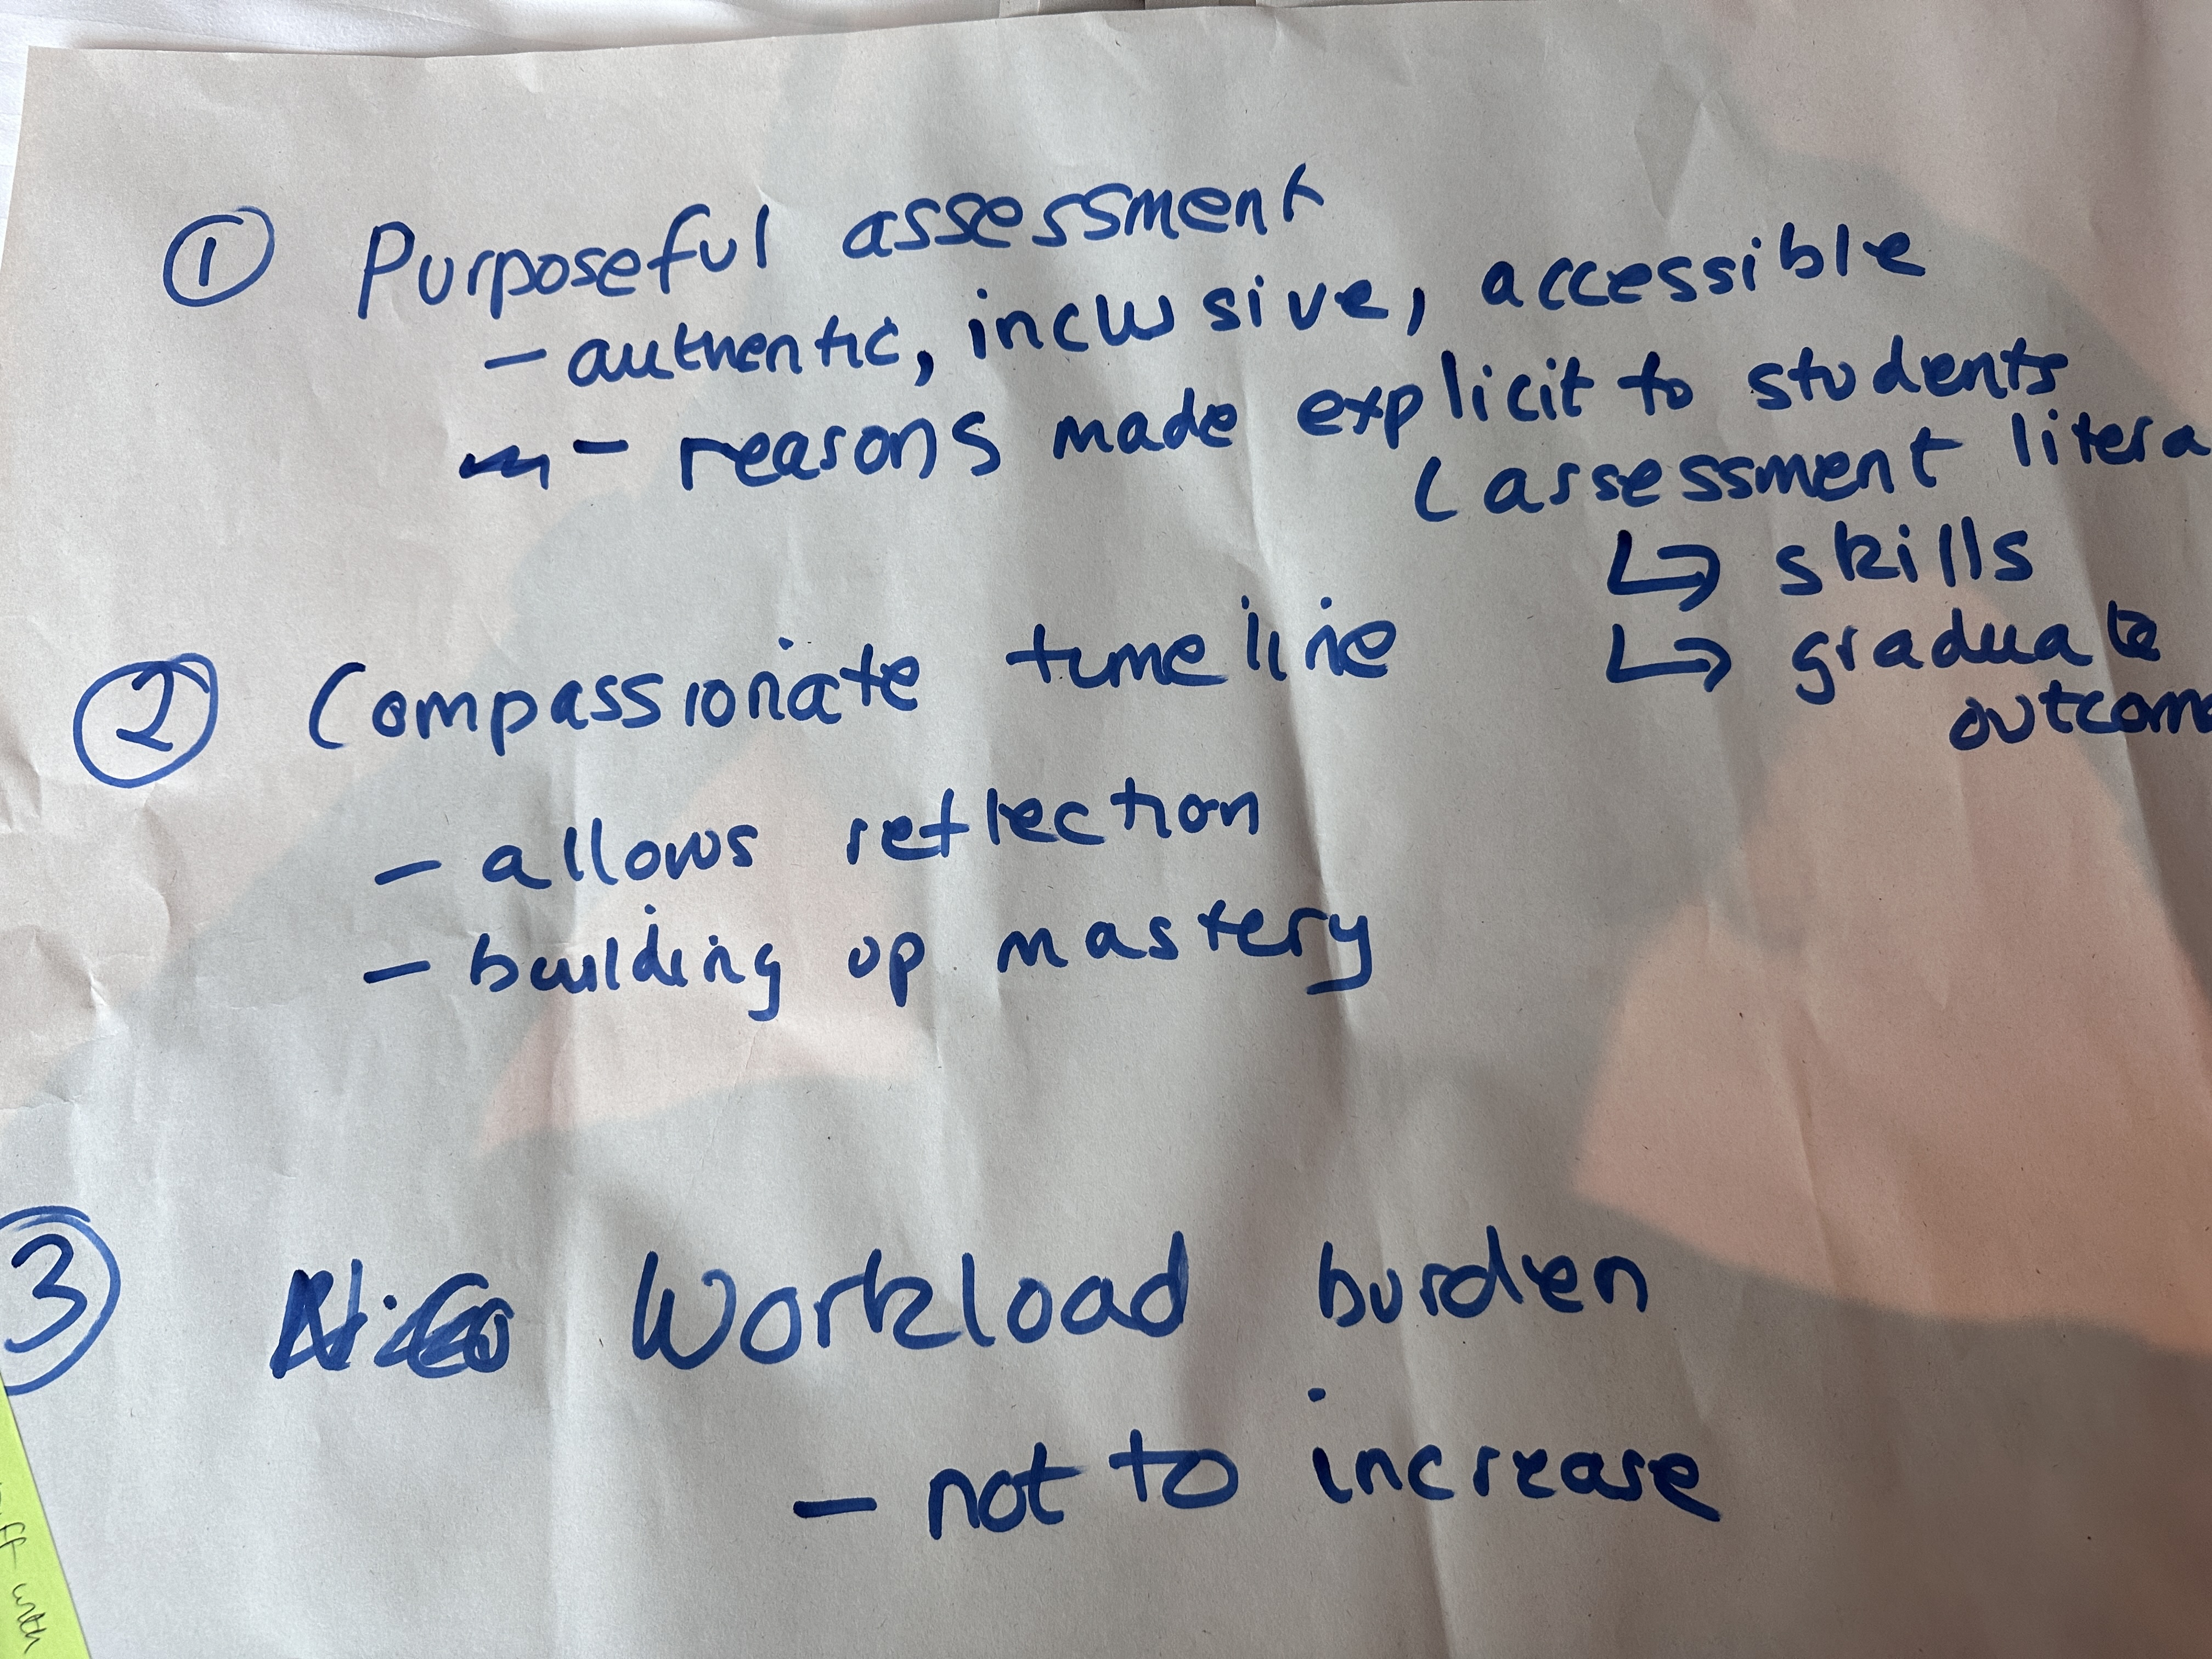 ① Purposeful assessment
- authentic, inclusive, accessible
- reasons made explicit to students
(assessment litera
↳ skills
↳ graduate
outcom
② Compassionate timeline
- allows reflection
- building up mastery
③ Workload burden
- not to increase
with